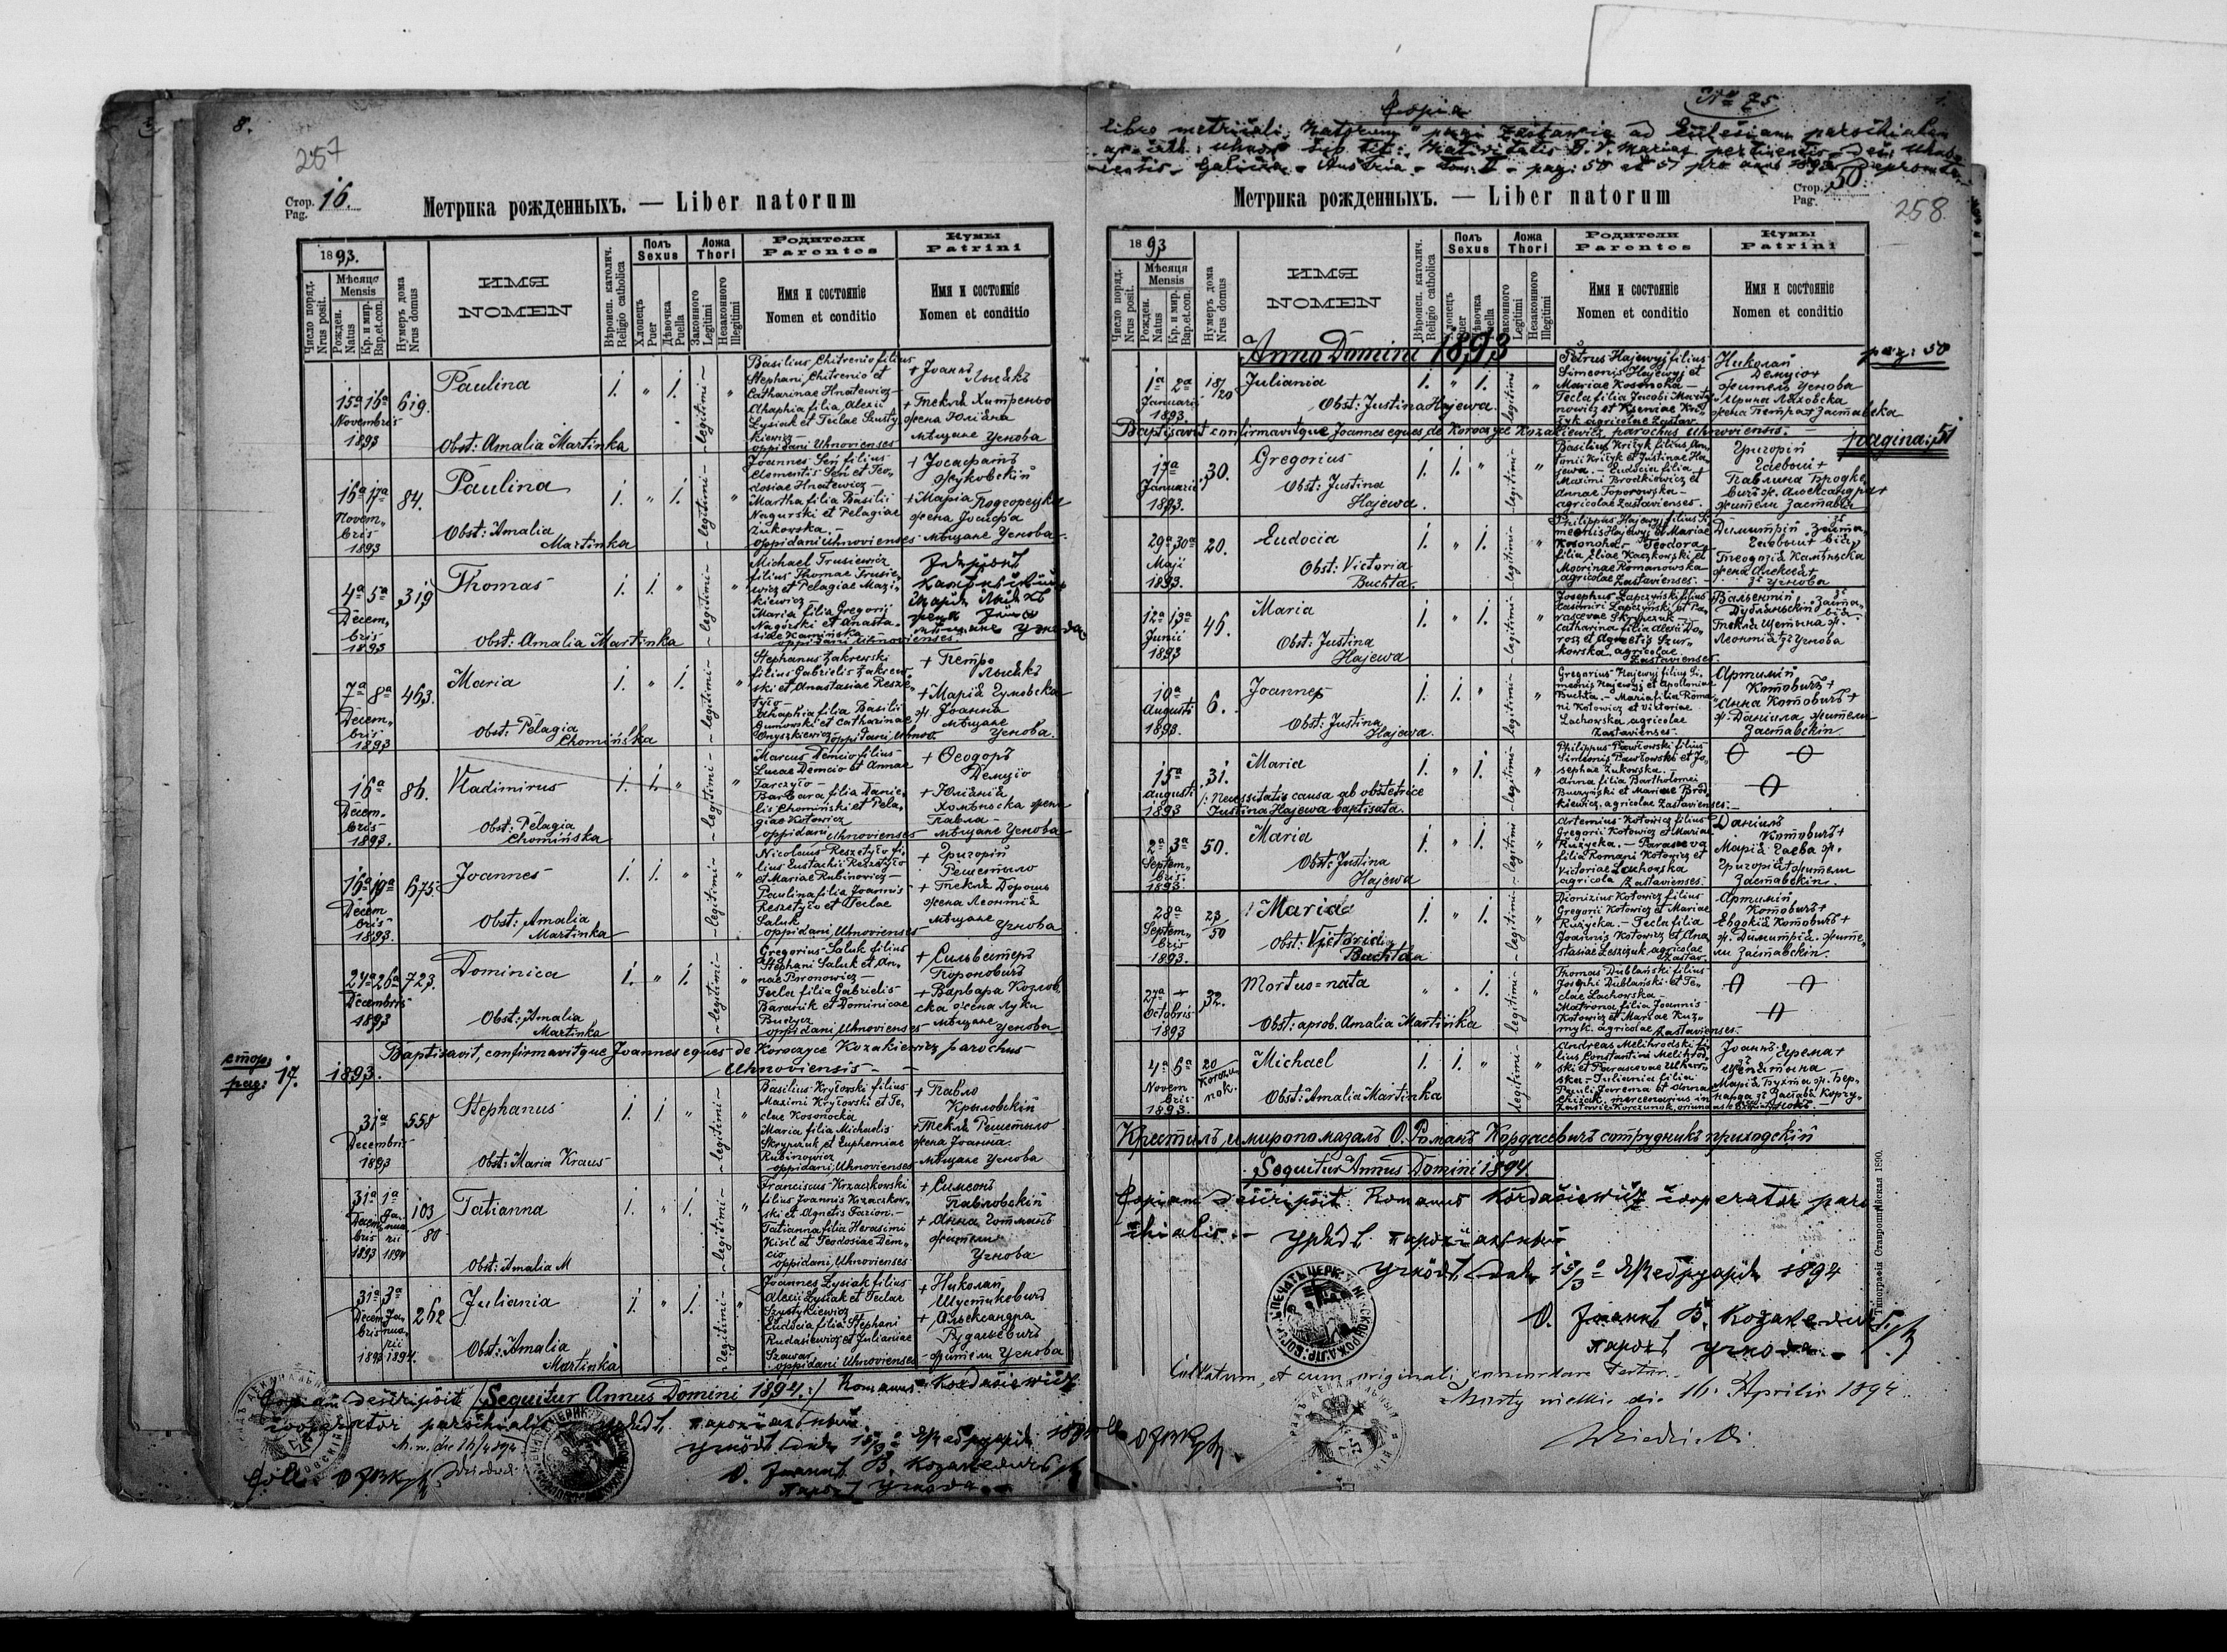 8.
257
Стор. Pag. 16.
Метрика рожденныхъ. — Liber natorum
1893.
Число поряд. Nrus posit.
Мѣсяцо Mensis
Рожден. Natus
Кр. и мир. Bap. et con.
Нумеръ дома Nrus domus
ИМЯ
NOMEN
Вѣроисп. католич. Religio catholica
Полъ Sexus
Хлопецъ Puer
Дѣвочка Puella
Ложа Thori
Законного Legitimi
Незаконного Illegitimi
Родители Parentes
Имя и состоянiе
Nomen et conditio
Кумы Patrini
Имя и состоянiе
Nomen et conditio
15ª 16ª Novembris 1893
619.
Paulina
Obst: Amalia Martinka
1. " 1. - legitimi - "
Basilius Chitrenio filius
Stephani Chitrenio et
Catharinae Hnatewicz -
Ahaphia filia Alexii
Lysiak et Teclae Szusty
kiewicz -
oppidani Uhnovienses
+ Іоаннъ
Лысякъ
+ Текля Хитреньо
жена Юліяна
мѣщане Угнова
16ª 17ª Novem„ bris 1893
84.
Paulina
Obst: Amalia
Martinka
1. " 1. - legitimi - "
Joannes Seń filius
Clementis Seń et Teo„
dosiae Hnatewicz -
Martha filia Basilii
Nagurski et Pelagiae
Żukowska -
oppidani Uhnovienses
+ Іосафатъ
Жуковскій
+ Марія Подгорецка
жена Іосифа
мѣщане Угнова
4ª 5ª Decem„ bris 1893
319
Thomas
Obst: Amalia Martinka
1. 1. " - legitimi - "
Michael Trusiewicz
filius Thomae Trusie„
wicz et Pelagiae Mazi„
kiewicz -
Maria filia Gregorii
Nagórski et Anasta„
siae Kamińska
oppidani Uhnovienses
мѣщане Угнова
7ª 8ª Decem„ bris 1893
463.
Maria
Obst: Pelagia
Chomińska
1. " 1. - legitimi - "
Stephanus Zakrewski
filius Gabrielis Zakrew„
ski et Anastasiae Resze„
tyło -
Ahaphia filia Basilii
Gumowski et Catharinae
Onyszkiewicz oppidani Uhnov.
+ Петро
Лысякъ
+ Марія Гумовска
ж. Іоанна
мѣщане
Угнова.
16ª Decem„ bris 1893.
86.
Vladimirus
Obst: Pelagia
Chomińska
1. 1. " - legitimi - "
Marcus Demcio filius
Lucae Demcio et Annae
Tarczyło
Barbara filia Danie„
lis Chomiński et Pela„
giae Kotowicz
oppidani Uhnovienses
+ Ѳеодоръ
Демціо
+ Юліянія
Хомѣньска жена
Павла -
мѣщане Угнова
16ª 19ª Decem bris 1893.
675.
Joannes
Obst: Amalia
Martinka
1. 1. " - legitimi - "
Nicolaus Reszetyło fi„
lius Eustachii Reszetyło
et Mariae Rubinowicz -
Paulina filia Joannis
Reszetyło et Teclae
Saluk
oppidani Uhnovienses
+ Григорій
Решетыло
+ Текля Дорошъ
жена Леонтія
мѣщане
Угнова
24ª 26ª Decembris 1893
723.
Dominica
Obst: Amalia
Martinka
1. " 1. - legitimi - "
Gregorius Saluk filius
Stephani Saluk et An„
nae Poronowicz -
Tecla filia Gabrielis
Baranik et Dominicae
Budycz
oppidani Uhnovienses
+ Сильвестеръ
Пороновичъ
+ Варвара Козлов„
ска жена Луки
- мѣщане Угнова
стор. pag: 17.
1893.
Baptisavit, confirmavitque Joannes eques de Koroczyce Kozakiewicz parochus
Uhnoviensis -
31ª Decembris 1893
558
Stephanus
Obst: Maria Kraus
1. 1 " - legitimi - "
Basilius Kryłowski filius
Maximi Kryłowski et Te„
clae Kosonocka
Maria filia Michaelis
Skrypczuk et Euphemiae
Rubinowicz
oppidani Uhnovienses
+ Павло
Крыловскій
+ Текля Решетыло
жена Іоанна.
мѣщане Угнова
31ª 1ª Decem„ bris Januarii 1893 1894
103/80
Tatianna
Obst: Amalia M
1. " 1. - legitimi - "
Franciscus Krzaczkowski
filius Joannis Krzaczkow„
ski et Agnetis Fazion. -
Tatianna filia Herasimi
Kisil et Teodosiae Dem„
cio
oppidani Uhnovienses
+ Симеонъ
Павловскій
+ Анна Готманъ
жители
Угнова
31ª 3ª Decem bris Januarii 1893 1894.
262
Juliania
Obst: Amalia
Martinka
1. " 1. - legitimi - "
Joannes Lysiak filius
Alexii Lysiak et Teclae
Szustykiewicz
Eudocia filia Stephani
Rudasiewicz et Julianiae
Szawar
oppidani Uhnovienses
+ Николай
Шустикевичъ
+ Александра
Рудасевичъ
- жители Угнова
/Sequitur Annus Domini 1894./
Copiam descripsit Romanus Kordasiewicz
cooperator parochialis
Урядъ парохіяльный
Угновъ дня 15/3 Февруарія 1894
О. Іоаннъ В. Козакевичъ
парохъ Угнова
Copia
Nº 75
1.
libro metricali „Natorum" pagi Zastawie ad Ecclesiam parochialem
gr. cath: Uhnov sub tit: Nativitatis B. V. Mariae pertinentis
Galicia - Austria - Tom: II - pag: 50 et 51 pro anno 1893
Метрика рожденныхъ. — Liber natorum
Стор. Pag. 50.
258
1893
Число поряд. Nrus posit.
Мѣсяця Mensis
Рожден. Natus
Кр. и мир. Bap. et con.
Нумеръ дома Nrus domus
ИМЯ
NOMEN
Вѣроисп. католич. Religio catholica
Полъ Sexus
Хлопецъ Puer
Дѣвочка Puella
Ложа Thori
Законного Legitimi
Незаконного Illegitimi
Родители Parentes
Имя и состоянiе
Nomen et conditio
Кумы Patrini
Имя и состоянiе
Nomen et conditio
Anno Domini 1893
pag: 50
1ª 2ª Januarii 1893.
18/20
Juliania
Obst: Justina Hajewa.
1. " 1. - legitimi "
Petrus Hajewyj filius
Simeonis Hajewyj et
Mariae Kosonoha -
Tecla filia Jacobi Marty
nowicz et Kseniae Kry
żyk agricolae Zastav.
Николай
Демціо +
житель Угнова
+ Ирина Ляховска
жена Петра з Заставска
Baptisavit confirmavitque Joannes eques de Koroczyce Kozakiewicz, parochus Uhnoviensis. -
pagina: 51
17ª Januarii 1893.
30.
Gregorius
Obst: Justina
Hajewa.
1. 1. " - legitimi - "
Basilius Kriżyk filius An„
tonii Kriżyk et Justinae Ha„
jewa. - Eudocia filia
Maximi Brodkiewicz et
Annae Toporowska -
agricolae Zastavienses.
Григорій
Гаевый +
Павлина Бродке„
вичъ ж. Александра +
жители Заставья
29ª 30ª Maji 1893.
20.
Eudocia
Obst: Victoria
Buchta.
1. " 1. - legitimi - "
Philippus Hajewyj filius Si
meonis Hajewyj et Mariae
Kosonoha. - Teodora
filia Eliae Kaczkowski et
Mocrinae Romanowska
agricolae Zastavienses. -
Димитрій
Гаевый
Теодозія Камѣньска
жена Алексѣя +
зъ Угнова
12ª 13ª Junii 1893
45.
Maria
Obst: Justina
Hajewa
1. " 1. - legitimi - "
Josephus Łapczyński filius
Casimiri Łapczyński et Pa„
rascevae Skrypczuk -
Catharina filia Alexii Do„
rosz et Agnetis Szur„
kowska agricolae
Zastavienses.
+ Валентій
Дублянскій
Текля Щетына ж.
Леонтія зъ Угнова
19ª Augusti 1893.
6.
Joannes
Obst: Justina
Hajewa.
1. 1. " - legitimi - "
Gregorius Hajewyj filius Si„
meonis Hajewyj et Apolloniae
Buchta. - Maria filia Roma„
ni Kotowicz et Victoriae
Lachowska agricolae
Zastavienses. -
Артимій
Котовичъ +
Анна Котовичъ +
ж. Данила жители
Заставскіи
15ª Augusti 1893
31.
Maria
/: Necessitatis causa ab obstetrice
Justina Hajewa baptisata.
1. " 1. - legitimi - "
Philippus Pawłowski filius
Simeonis Pawłowski et Jo„
sephae Żukowska. -
Anna filia Bartholomei
Buczyński et Mariae Brod„
kiewicz. agricolae Zastavienses: -
2ª 3ª Septem„ bris. 1893.
50.
Maria
Obst: Justina
Hajewa
1. " 1. - legitimi "
Artemius Kotowicz filius
Gregorii Kotowicz et Mariae
Rużycka. - Parasceva
filia Romani Kotowicz et
Victoriae Lachowska
agricola Zastavienses.
Данилъ
Котовичъ +
Марія Гаева ж.
Григорія + жители
Заставскіи.
28ª Septem„ bris 1893.
23/50
Maria
Obst: Victoria
Buchta
1. " 1. - legitimi - "
Dionizius Kotowicz filius
Gregorii Kotowicz et Mariae
Rużycka. - Tecla filia
Joannis Kotowicz et Ana„
stasiae Leszczuk agricolae
Zastav.
Артимій
Котовичъ +
Евдокія Котовичъ +
ж. Димитрія. жите„
ли Заставскіи.
27ª + Octobris 1893
32.
Mortuo=nata
Obst: aprob. Amalia Martinka
" " 1. - legitimi - "
Thomas Dublański filius
Josephi Dublański et Te„
clae Lachowska -
Matrona filia Joannis
Kotowicz et Mariae Kuz„
myk. agricolae Zastavienses. -
4ª 6ª Novem bris 1893.
20 Korczu„ nok.
Michael
Obst: Amalia Martinka
1. 1. " legitimi - "
Andreas Melihrodski fi„
lius Constantini Melihrod„
ski et Parascevae Uchań„
ska - Juliania filia
Pauli Jarema et Annae
Chiżak, mercenarius in
Zastavie-Korczunok,
Іоаннъ Ярема +
Щентына
Марія Бухта ж. Бер„
нарда зъ Застава Корчу„
Крестилъ и миропомазалъ О. Романъ Кордасевичъ сотрудникъ приходскій
Sequitur Annus Domini 1894
Copiam descripsit Romanus Kordasiewicz cooperator paro
chialis. -
Урядъ парохіяльный
Угновъ дня 15/3 Февруарія 1894
О. Іоаннъ В. Козакевичъ
парохъ Угнова
Collatum, et cum originali concordare testor.
Mosty wielkie die 16. Aprilis 1894.
Типографія Ставропигійская 1890.